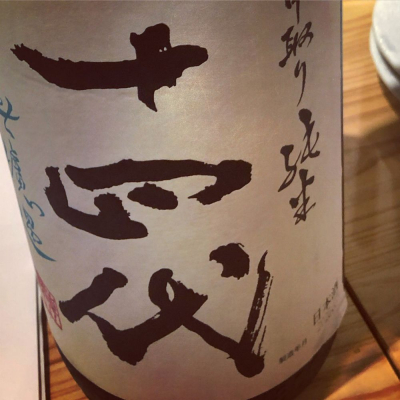 り取り 純米
十四代
日本酒
製造年月